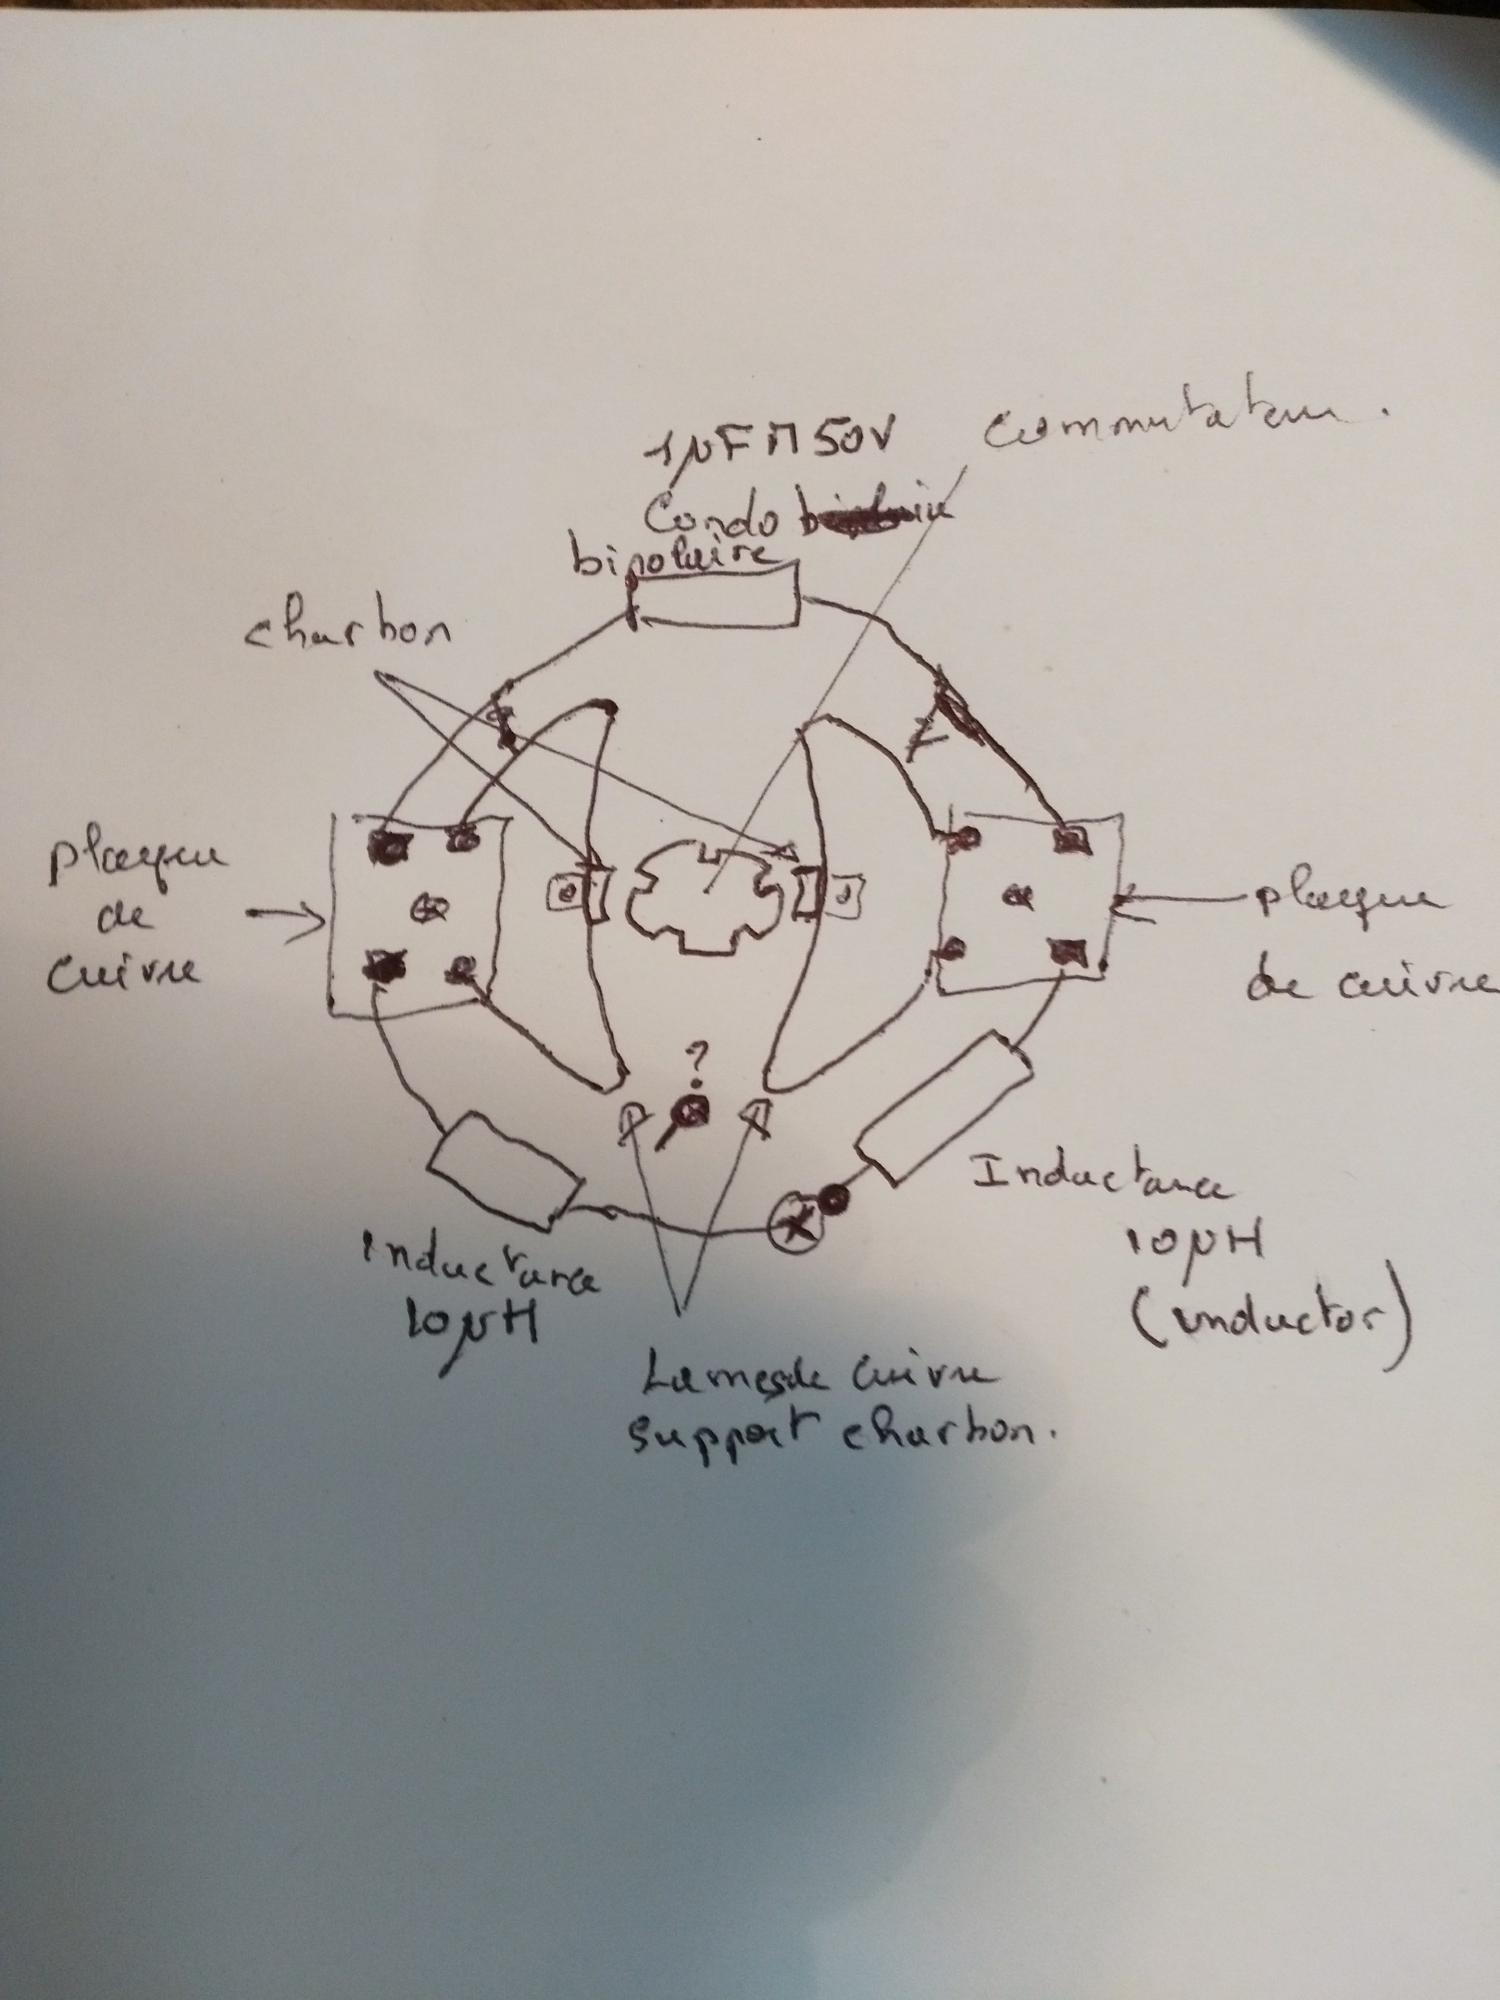 1µF M 50V
Condo
bipolaire
Commutateur.
charbon
plaque
de
cuivre
plaque
de cuivre
?
Inductance
10µH
(inductor)
Inductance
10µH
Lames de cuivre
support charbon.